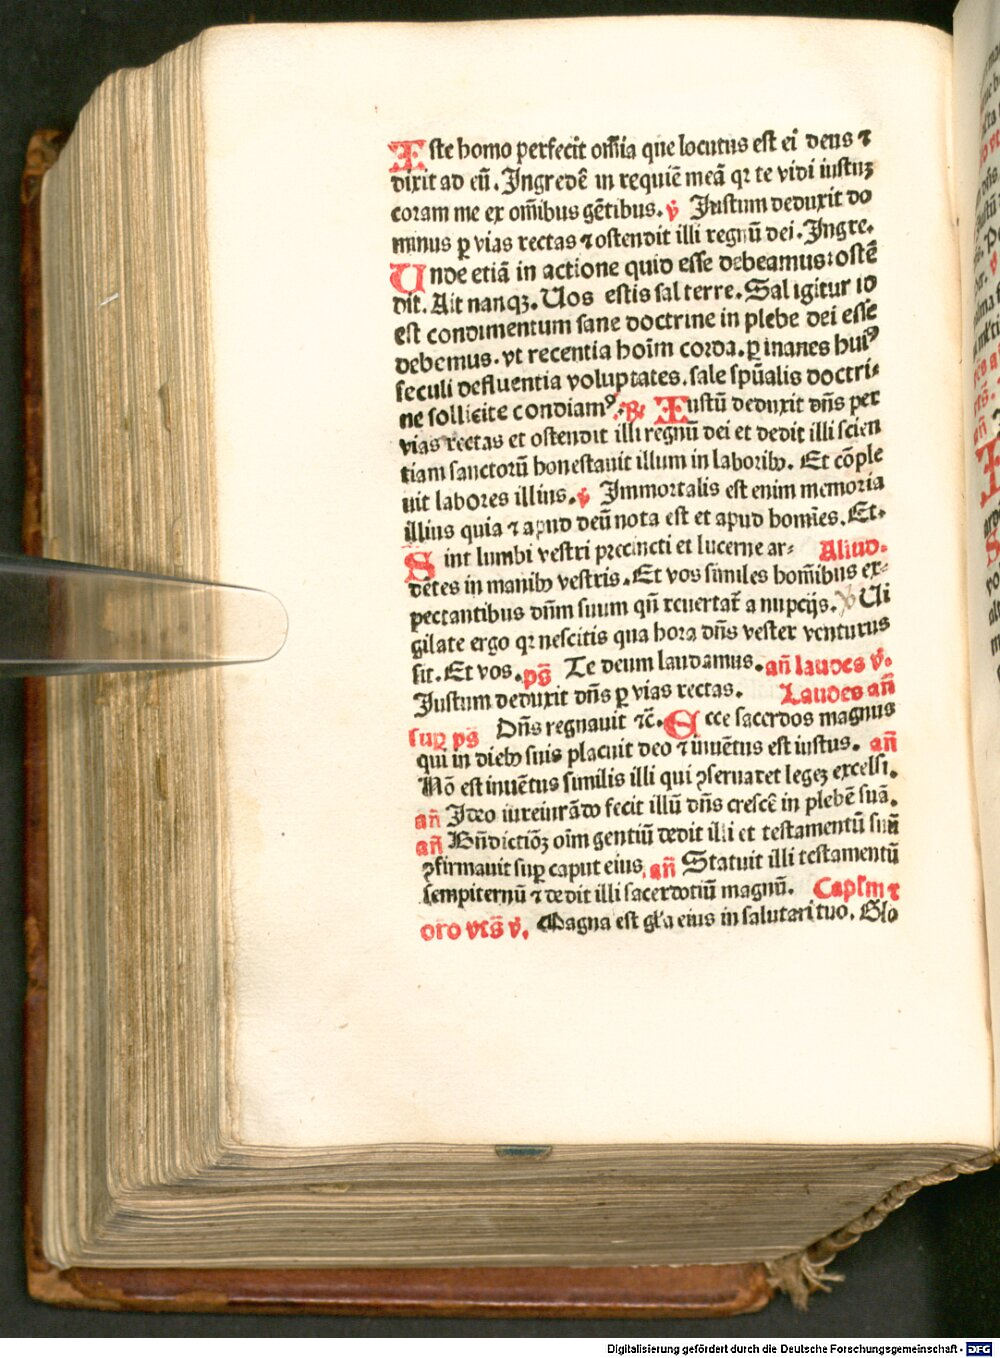 Iste homo perfecit om̄ia que locutus est ei deus ⁊
dixit ad eū. Ingredē in requiē meā qꝛ te vidi iustuꝫ
coram me ex om̄ibus gētibus. v̇ Iustum deduxit do
minus ꝑ vias rectas ⁊ ostendit illi regnū dei. Ingre.
Unde etiā in actione quid esse debeamus: ostē
dit. Ait nanqꝫ. Uos estis sal terre. Sal igitur id
est condimentum sane doctrine in plebe dei esse
debemus. vt recentia hoīm corda. ꝑ inanes huiꝰ
seculi defluentia voluptates. sale spūalis doctri⸗
ne sollicite condiamꝰ. ℟ Iustū deduxit dn̄s per
vias rectas et ostendit illi regnū dei et dedit illi scien
tiam sanctorū honestauit illum in laboribꝫ. Et cōple
uit labores illius. v̇ Immortalis est enim memoria
illius quia ⁊ apud deū nota est et apud homīes. Et.
Sint lumbi vestri precincti et lucerne ar⸗ Aliud.
dētes in manibꝫ vestris. Et vos similes hom̄ibus ex⸗
pectantibus dn̄m suum qn̄ reuertat᷑ a nupcijs. v̇ Ui
gilate ergo qꝛ nescitis qua hora dn̄s vester venturus
sit. Et vos. ps̄ Te deum laudamus. an̄ laudes v̇.
Iustum deduxit dn̄s ꝑ vias rectas. Laudes an̄
suꝑ ps̄ Dn̄s regnauit ⁊c̄. Ecce sacerdos magnus
qui in diebꝫ suis placuit deo ⁊ inuētus est iustus. an̄
Nō est inuētus similis illi qui ꝯseruaret legeꝫ excelsi.
an̄ Ideo iureiurādo fecit illū dn̄s crescē in plebē suā.
an̄ Bn̄dictiōꝫ oīm gentiū dedit illi et testamentū suū
ꝯfirmauit suꝑ caput eius. an̄ Statuit illi testamentū
sempiternū ⁊ dedit illi sacerdotiū magnū. Capl'm ⁊
oro vts̄ v̇. Magna est gl'a eius in salutari tuo. Glo
Digitalisierung gefördert durch die Deutsche Forschungsgemeinschaft - DFG